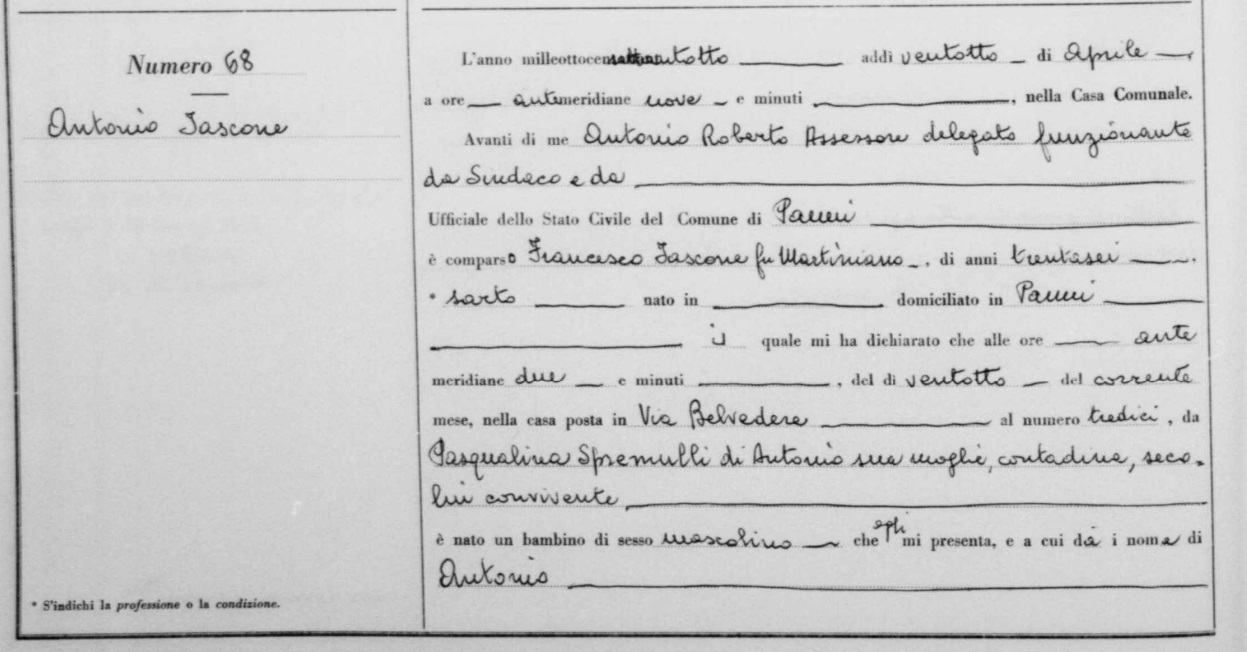 Numero 68
Antonio Iascone
* S'indichi la professione o la condizione.
L'anno milleottocensettantotto addì ventotto di Aprile
a ore antimeridiane nove e minuti , nella Casa Comunale.
Avanti di me Antonio Roberto Assessore delegato funzionante
da Sindaco e da
Ufficiale dello Stato Civile del Comune di Panni
è comparso Francesco Iascone fu Martiniano , di anni trentasei ,
* sarto nato in domiciliato in Panni
il quale mi ha dichiarato che alle ore ante
meridiane due e minuti , del dì ventotto del corrente
mese, nella casa posta in Via Belvedere al numero tredici , da
Pasqualina Spremulli di Antonio sua moglie, contadina, seco-
lui convivente,
è nato un bambino di sesso mascolino che egli mi presenta, e a cui dà i nome di
Antonio